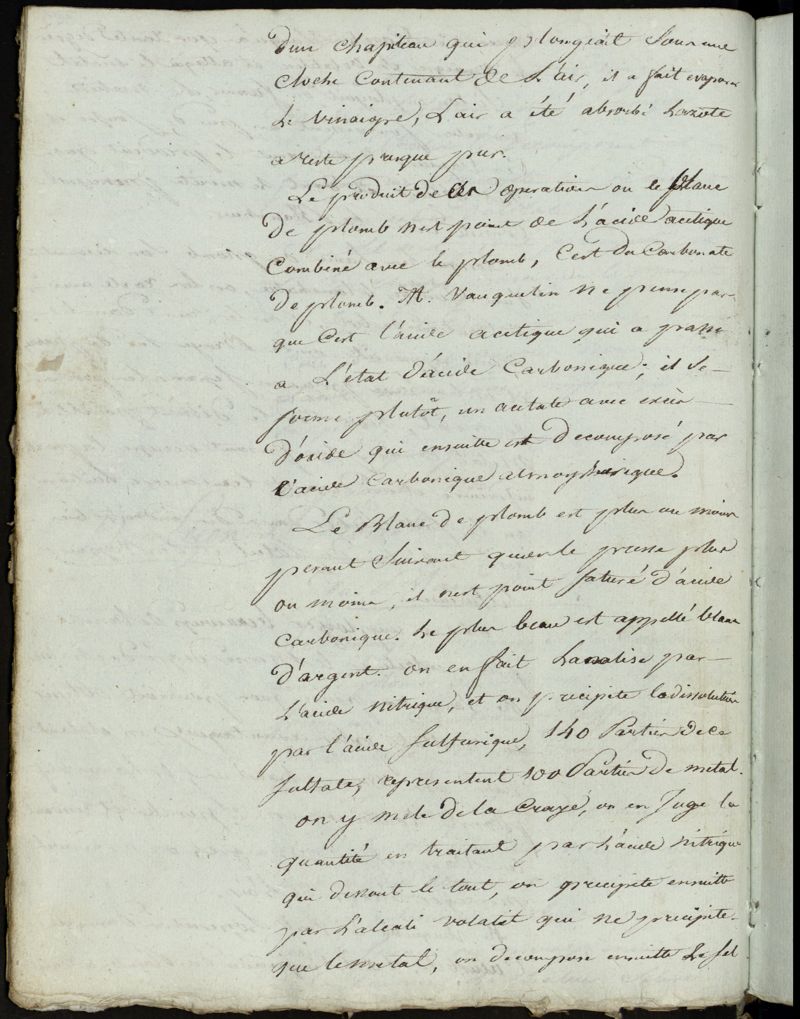 d'un chapiteau qui plongeait sous une
cloche contenant de L'air, il a fait evaporer
Le vinaigre, L'air a été absorbé Lazote
a resté presque pur.
Le produit de ces operations ou le Blanc
De plomb nest point de L'acide acetique
Combiné avec le plomb, C'est du Carbonate
De plomb. M. Vauquelin ne pense pas
que C'est l'acide acetique qui a passé
a L'état d'acide Carbonique; il se
forme plutôt, un acetate avec excès
D'oxide qui ensuitte est Decomposé par
L'acide Carbonique atmospherique.
Le Blanc de plomb est plus ou moins
pesant Suivant qu'on le presse plus
ou moins, il nest point saturé d'acide
Carbonique. Le plus beau est appellé blanc
D'argent. on en fait Lanalise par
L'acide nitrique, et on precipite la dissolution
par l'acide Sulfurique, 140 Parties de ce
sulfate, representent 100 Parties de metal.
on y mele de la Craye, on en Juge la
quantité en traitant par L'acide nitrique
qui dissout le tout, on precipite ensuitte
par L'alcali volatil qui ne precipite
que le metal, on decompose ensuitte Le sel